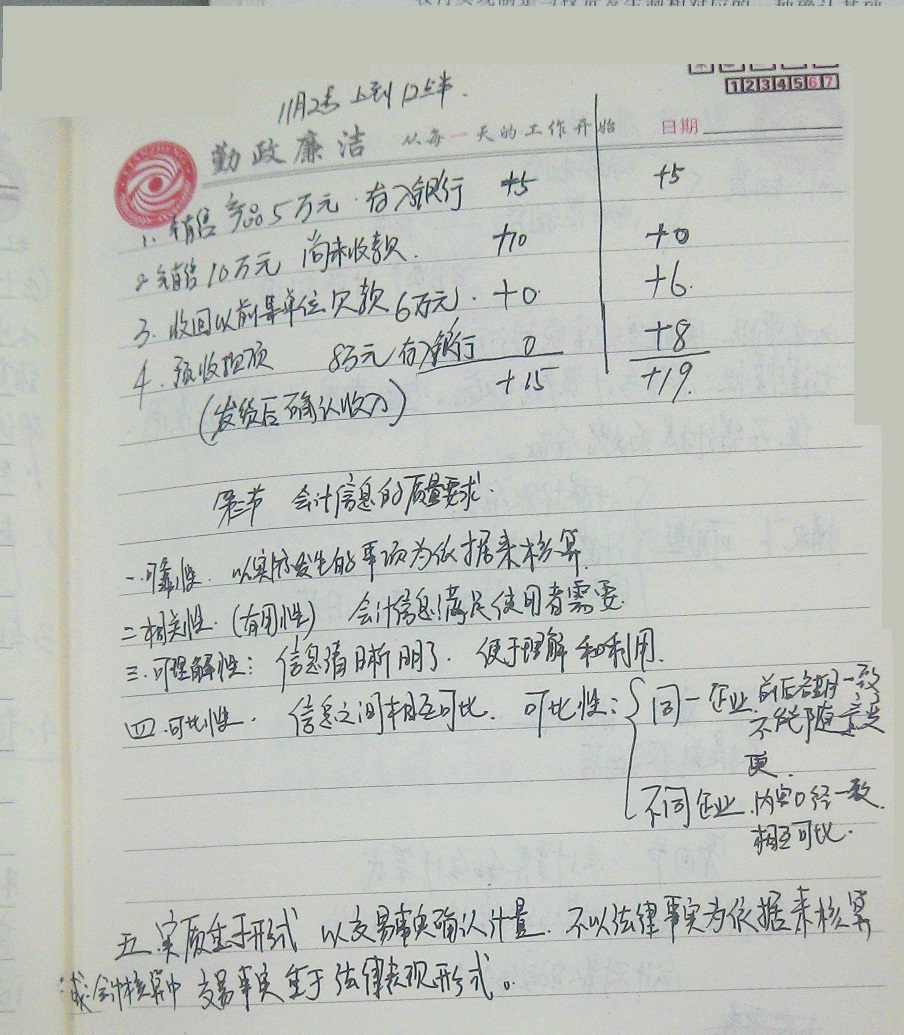 1234567
11月2号 上到12点半.
勤政廉洁 从每一天的工作开始 日期
1. 销售产品5万元.存入银行 +5 +5
2. 销售10万元 尚未收款. +10 +0
3. 收回以前某单位欠款6万元. +0 +6.
4. 预收 8万元存入银行 0 +8
(发货后确认收入) +15 +19.
第三节 会计信息的质量要求.
一.可靠性. 以实际发生的事项为依据来核算.
二相关性.(有用性) 会计信息满足使用者需要.
三.可理解性: 信息清晰明了. 便于理解和利用.
四.可比性. 信息之间相互可比. 可比性:{同一企业.前后各期一致
不能随意变
更.
不同企业.内容口径一致.
相互可比.
五.实质重于形式 以交易事实确认计量.不以法律事实为依据来核算
或:会计核算中 交易事实重于法律表现形式。